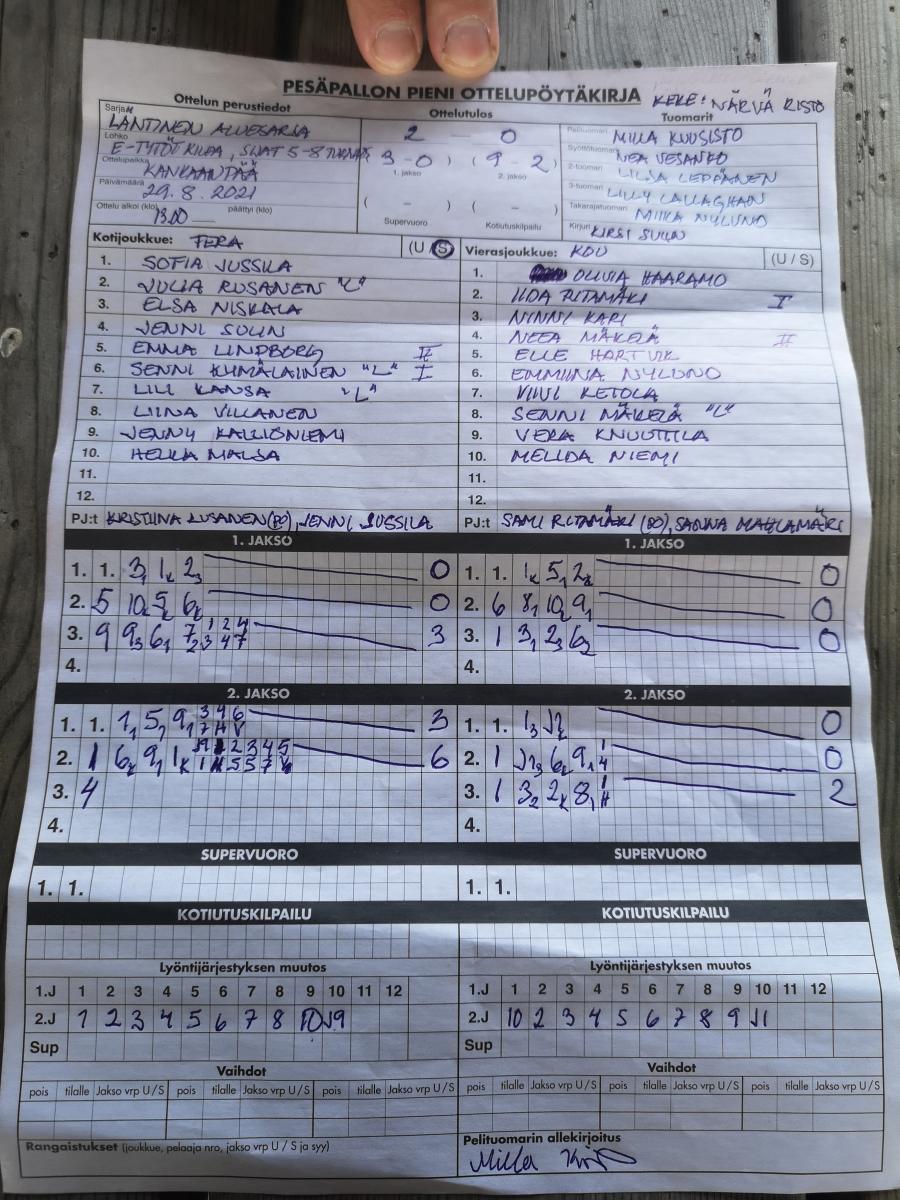 PESÄPALLON PIENI OTTELUPÖYTÄKIRJA
KEKE: NÄRVÄ RISTO
Ottelun perustiedot
Sarja
LÄNTINEN ALUESARJA
Lohko
E-TYTÖT KILPA, SIJAT 5-8 TURNAUS
Ottelupaikka
KANKAANPÄÄ
Päivämäärä
29.8.2021
Ottelu alkoi (klo) 13.00 päättyi (klo)
Ottelutulos
2 — 0
3 - 0 ) ( 9 - 2 )
1. jakso 2. jakso
( - ) ( - )
Supervuoro Kotiutuskilpailu
Tuomarit
Pelituomari MILLA KUUSISTO
Syöttötuomari NEA VESANKO
2-tuomari LILJA LEPPÄNEN
3-tuomari LILLY CALLAGHAN
Takarajatuomari MIIKA NYLUND
Kirjuri KIRSI SULIN
Kotijoukkue: FERA (U / S)
1. SOFIA JUSSILA
2. JULIA RUSANEN "L"
3. ELSA NISKALA
4. JENNI SULIN
5. EMMA LINDBORG II
6. SENNI KYMÄLÄINEN "L" I
7. LILI KANSA "L"
8. LIINA VILLANEN
9. JENNY KALLIONIEMI
10. HELKA MALSA
11.
12.
PJ:t KRISTIINA RUSANEN (PO), JENNI JUSSILA
Vierasjoukkue: KOU (U / S)
1. OLIVIA HAARAMO
2. IIDA RITAMÄKI I
3. NINNI KARI
4. NEEA MÄKELÄ II
5. ELLE HARTVIK
6. EMMIINA NYLUND
7. VIIVI KETOLA
8. SENNI MÄKELÄ "L"
9. VERA KNUUTTILA
10. MELIDA NIEMI
11.
12.
PJ:t SAMI RITAMÄKI (PO), SANNA MAHLAMÄKI
1. JAKSO
1. 1. 3₁ 1ₖ 2₃ 0
2. 5 10₂ 5₂ 6₂ 0
3. 9 9₃ 6₁ 7₂ 1 2 4 3 4 7 3
4.
1. JAKSO
1. 1. 1ₖ 5₁ 2₂ 0
2. 6 8₁ 10₂ 9₁ 0
3. 1 3₁ 2₃ 6₂ 0
4.
2. JAKSO
1. 1. 1₁ 5₁ 9₁ 3 4 6 3
2. 1 6ₖ 9₁ 1ₖ 6
3. 4
4.
2. JAKSO
1. 1. 1₃ J₂ 0
2. 1 J1₃ 6ₖ 9₁ 1 4 0
3. 1 3₂ 2ₖ 8₁ 2
4.
SUPERVUORO
1. 1.
SUPERVUORO
1. 1.
KOTIUTUSKILPAILU
KOTIUTUSKILPAILU
Lyöntijärjestyksen muutos
1.J 1 2 3 4 5 6 7 8 9 10 11 12
2.J 1 2 3 4 5 6 7 8 10 J9
Sup
Lyöntijärjestyksen muutos
1.J 1 2 3 4 5 6 7 8 9 10 11 12
2.J 10 2 3 4 5 6 7 8 9 J1
Sup
Vaihdot
pois tilalle Jakso vrp U / S pois tilalle Jakso vrp U / S pois tilalle Jakso vrp U / S
Vaihdot
pois tilalle Jakso vrp U / S pois tilalle Jakso vrp U / S pois tilalle Jakso vrp U / S
Rangaistukset (joukkue, pelaaja nro, jakso vrp U / S ja syy)
Pelituomarin allekirjoitus
Milla